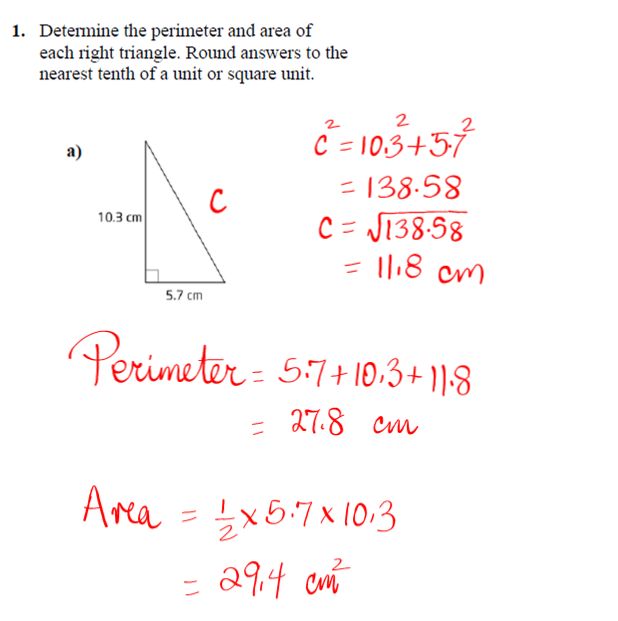 1. Determine the perimeter and area of
each right triangle. Round answers to the
nearest tenth of a unit or square unit.
a)
10.3 cm
5.7 cm
C
c² = 10.3² + 5.7²
= 138.58
C = √138.58
= 11.8 cm
Perimeter = 5.7 + 10.3 + 11.8
= 27.8 cm
Area = 1/2 x 5.7 x 10.3
= 29.4 cm²